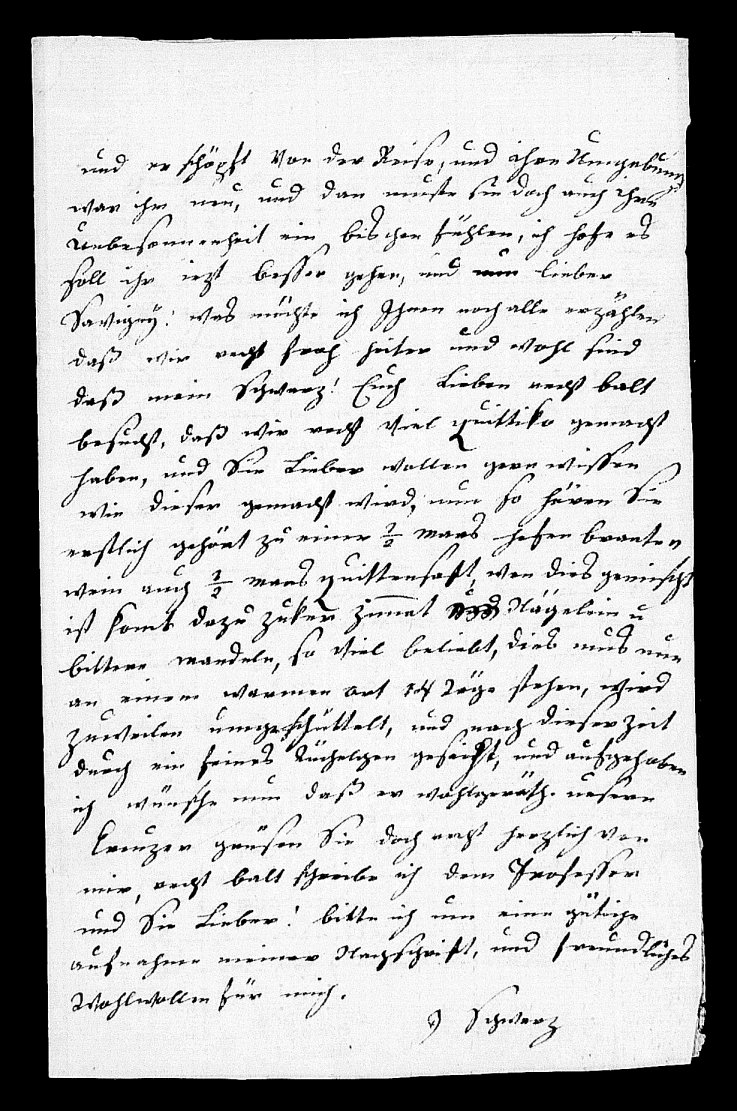 und erschöpft von der Reise, und ihre Umgebung
war ihr neu, und dan muste sie doch auch ihre
Unbesonnenheit ein bischen fühlen, ich hofe es
soll ihr iezt besser gehen, und nun lieber
Savigny! was möchte ich Ihnen noch alle erzählen
daß wir recht froh heiter und wohl sind
daß mein Schwarz! Euch Lieben recht balt
besucht, daß wir recht viel Quittiko gemacht
haben, und Sie Lieber wollen gern wissen
wie dieser gemacht wird, nun so hören Sie
erstlich gehört zu einer ½ maas hefen branten
wein auch ½ maas Quittensaft, wen dies gemischt
ist komt dazu zuker zimmat Nägelein u
bittere mandeln, so viel beliebt, dies mus nun
an einem warmen ort 14 Täge stehen, wird
zuweilen umgeschüttelt, und nach dieser zeit
durch ein feines Tüchelgen geseicht, und aufgehoben
ich wünsche nun daß er wohlgeräth. unsern
Creuzer grüsen Sie doch recht herzlich von
mir, recht balt schreibe ich dem Professor
und Sie Lieber! bitte ich um eine gütige
aufnahme meiner Nachschrift, und freundliches
Wohlwollen für mich.
J Schwarz